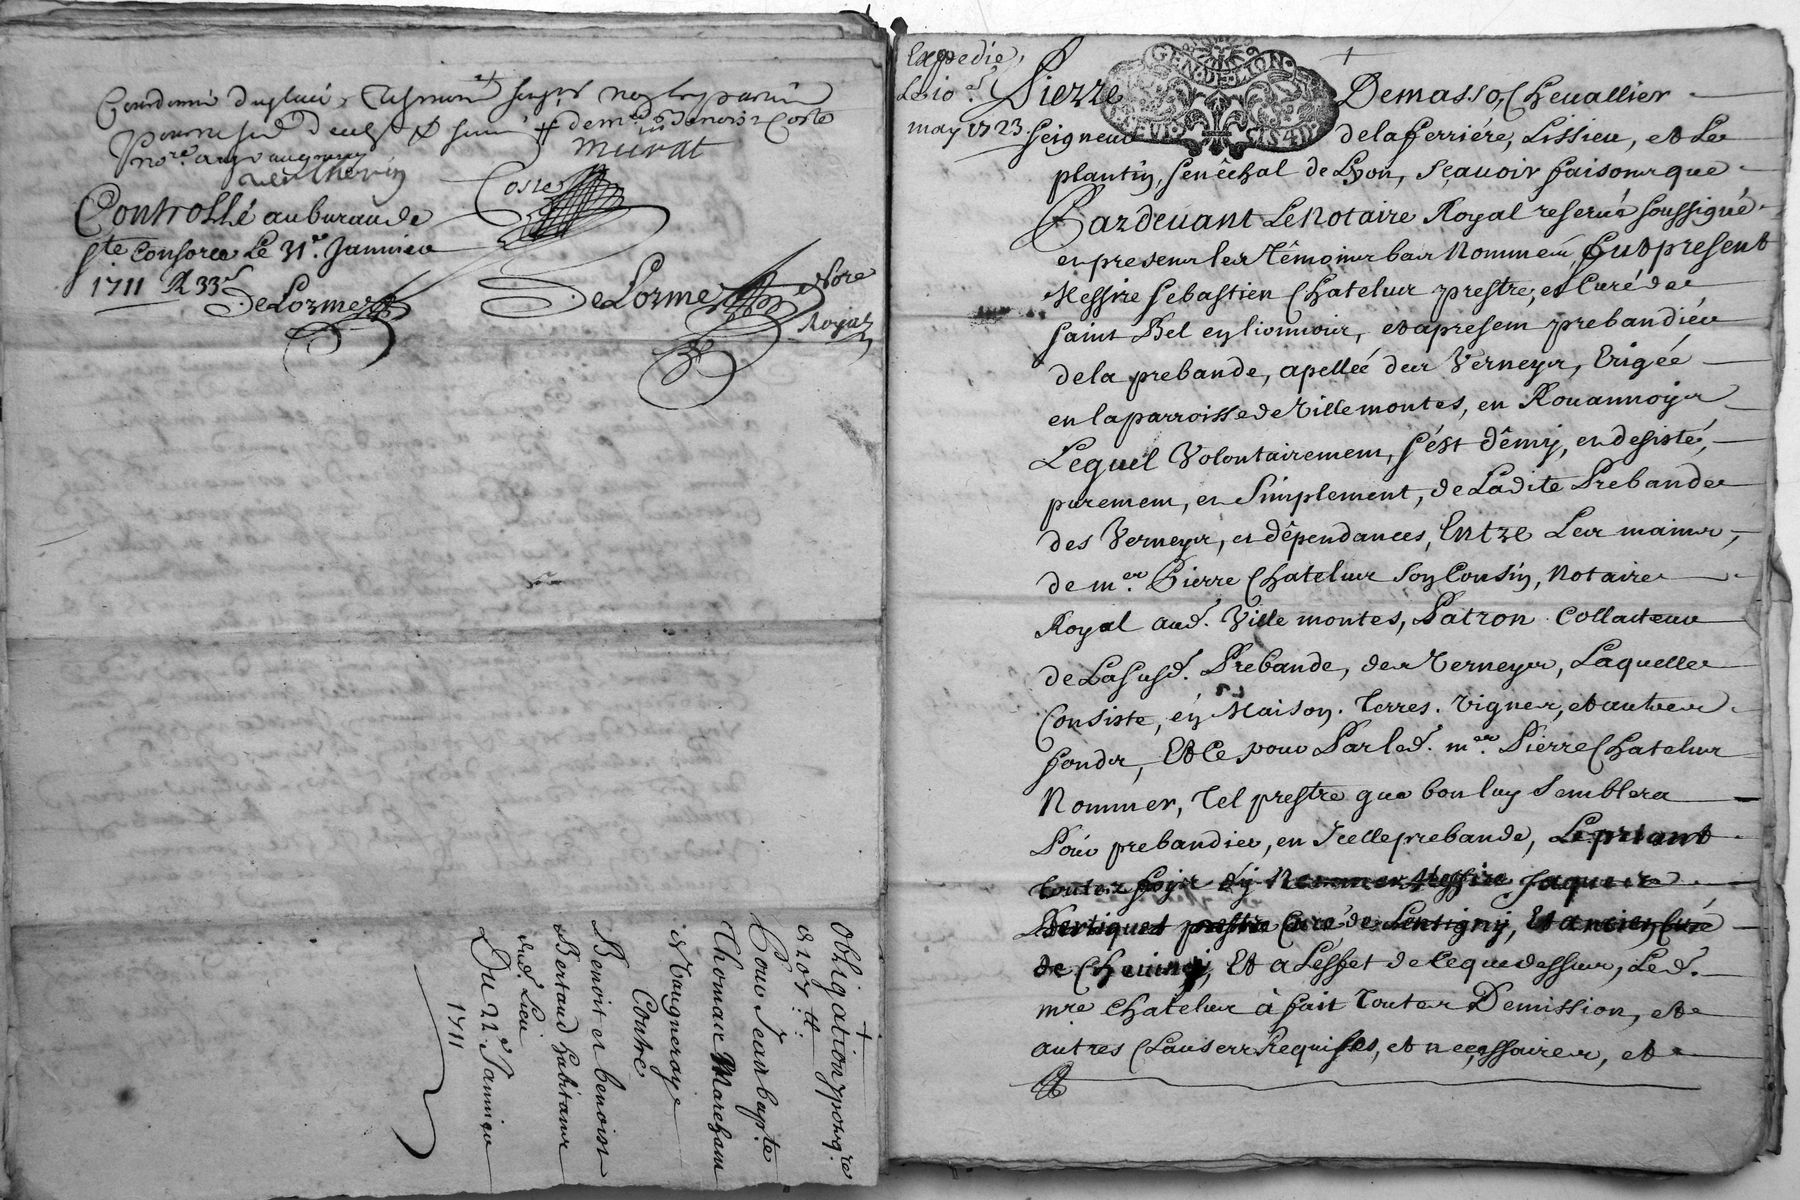 Controllé au bureau de
Ste Consorce Le 31e. Janvier
1711 R 33s
DeLorme
Coste
murat
DeLorme Nore
Royal
Obligation pour
& 107 tt
Pour Jean bapte
Thomas Marchant
à Vaugneroye
Contre
Benoit et benoist
Bertaud habitans
dud. Lieu
Du 22e Janvier
1711
Expedié
Le 10e
may 1723
GEN·DE·LION
Pierre Demasso, Chevallier
seigneur dela ferriére, Lissieu, et Le
plantin, senêchal de Lyon, sçavoir faisons que
Pardevant Le Notaire Royal reservé soussigné
en presence les têmoins bas Nommés, fut present
Messire Sebastien Chatelus prestre, et Curé de
saint Bel en lionnois, et apresent prebandier
dela prebande, apellée des Verneys, Erigée
en la parroisse de Villemontes, en Rouannoys
Lequel Volontairement, s'ést dêmy, en desisté,
purement, en simplement, de Ladite Prebande
des Verneys, et dêpendances, Entre Les mains,
de mer. Pierre Chatelus son Cousin, Notaire
Royal aud. Ville montes, Patron Collateur
de La susd. Prebande, des Verneys, Laquelle
Consiste, en Maison. Terres. Vignes, et autres
fonds, Et Ce pour Par led. mer. Pierre Chatelus
Nommer, Tel prestre que bon luy semblera
Pour prebandier, en Icelle prebande, Le priant
toutes fois d'y Nommer Messire Jaques
Bertiquet prestre Curé de Lentigny, Et ancien Curé
de Et a L'esfet de Ce que dessus, Led.
mre Chatelus à fait toutes Demission, et
autres Clauses Requises, et neçessaires, et